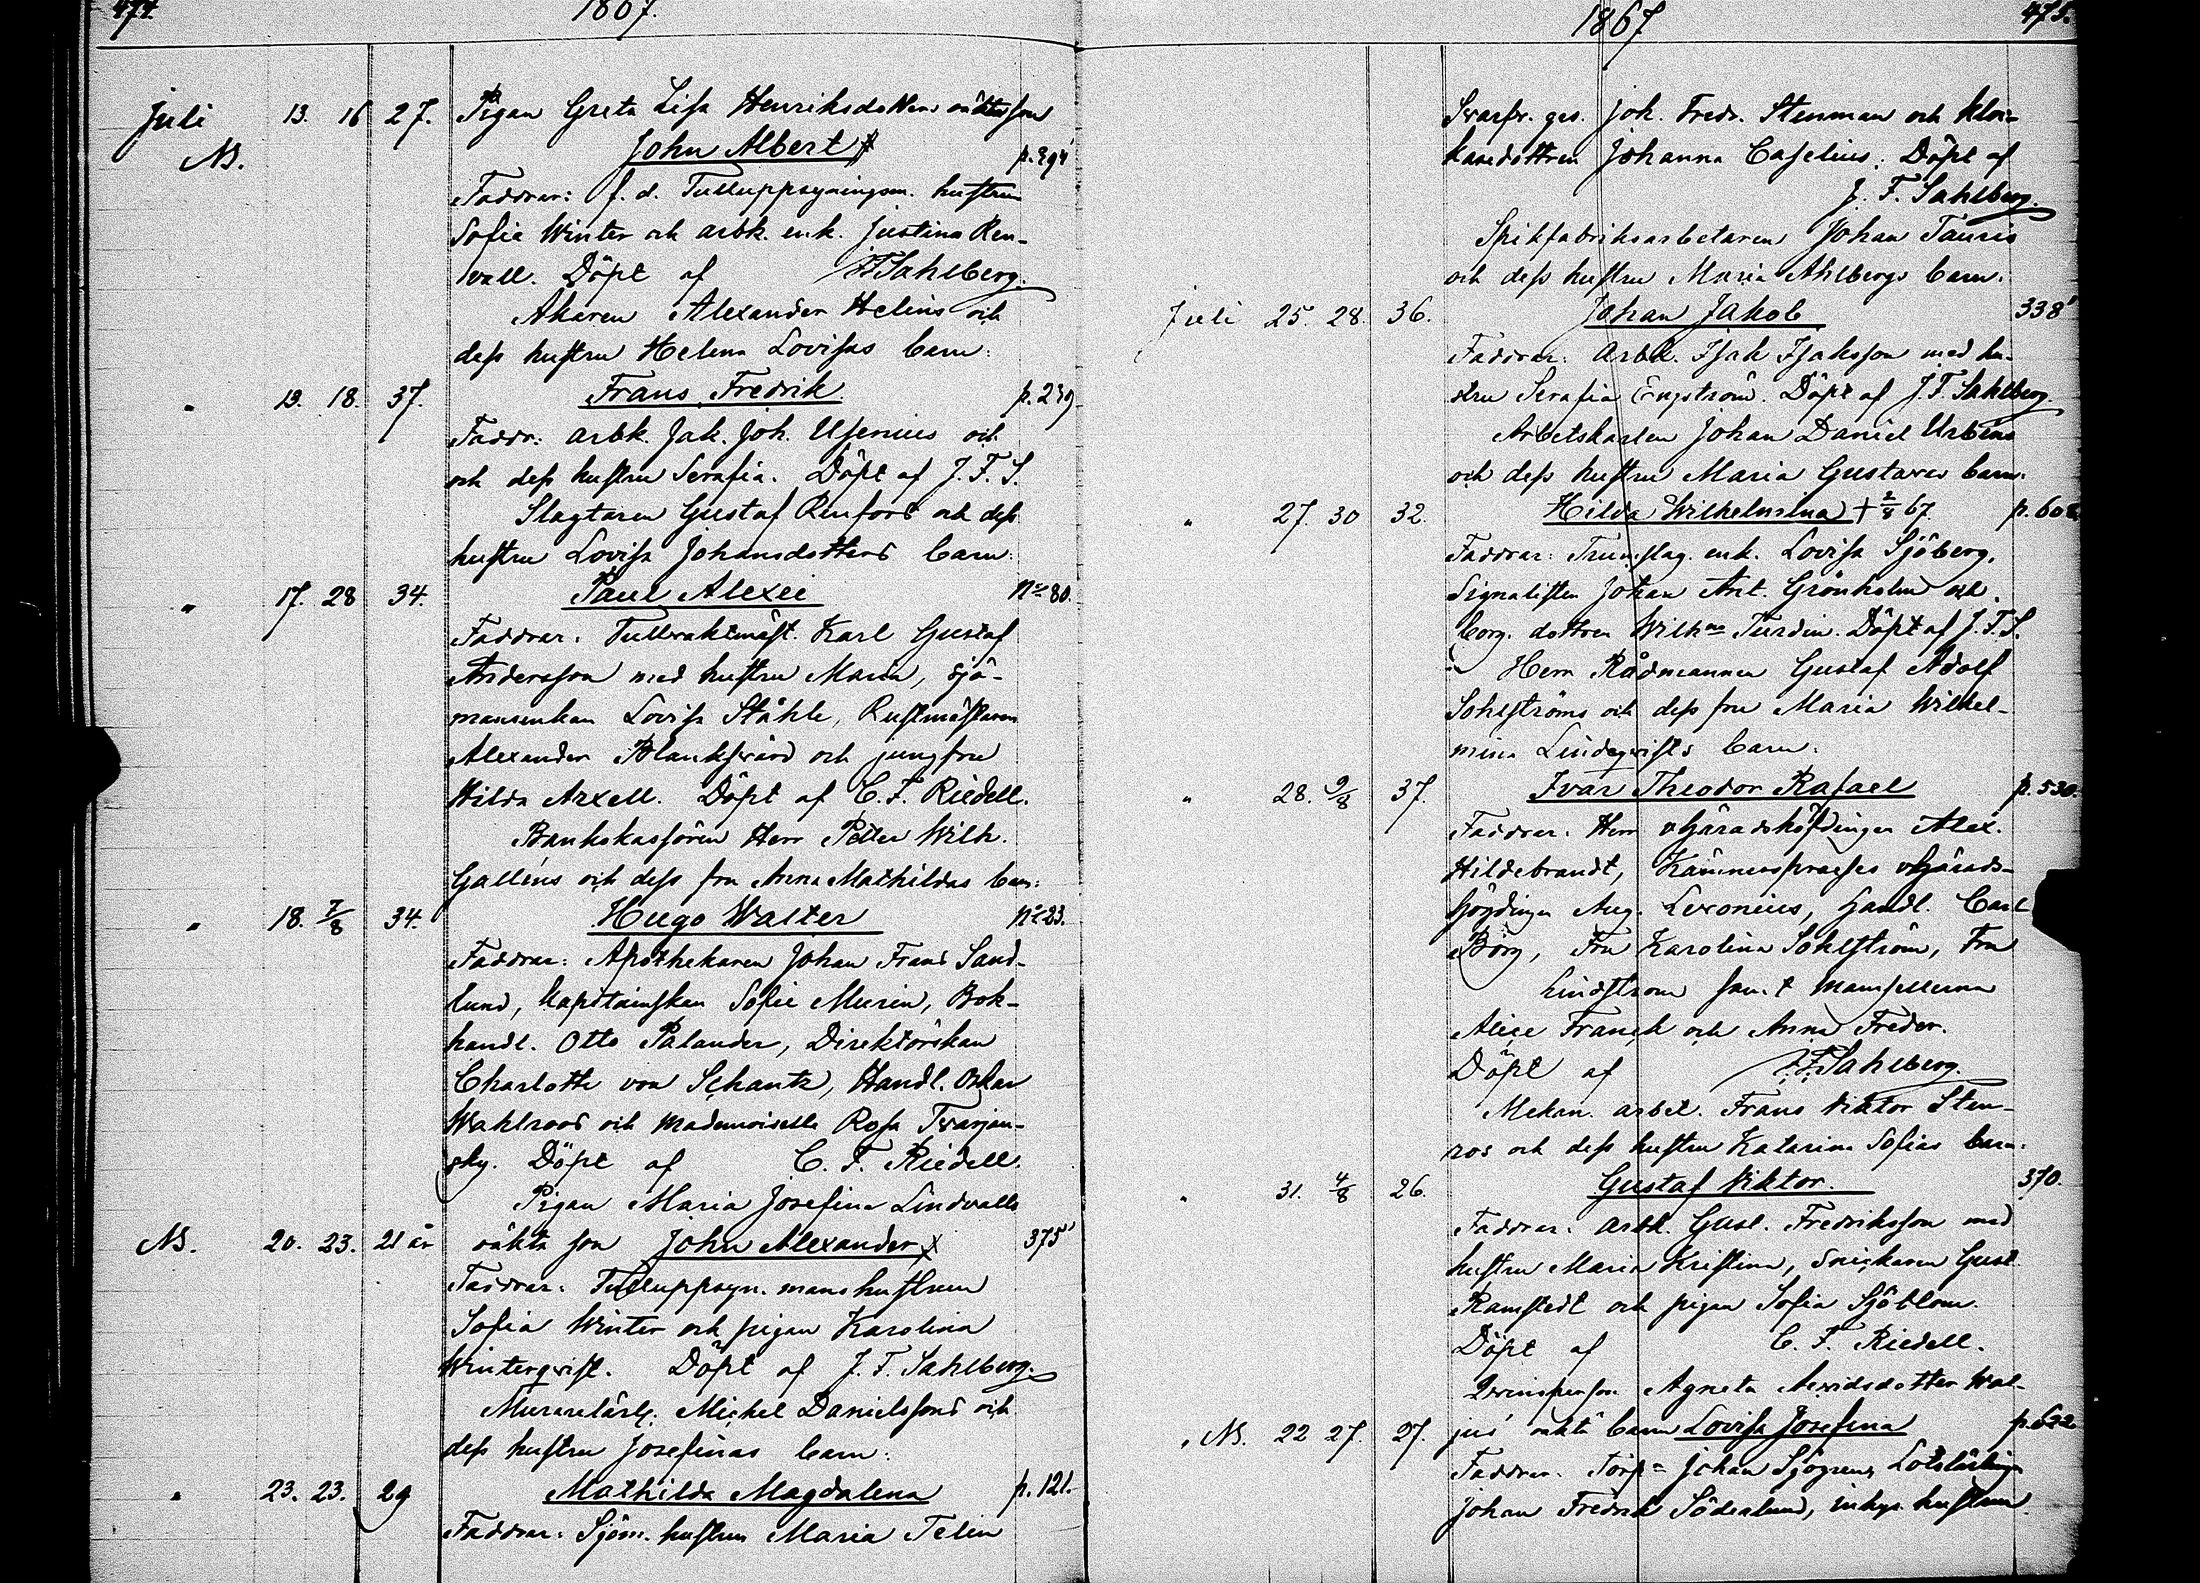 474. 1867.
Juli 13. 16 27. Pigan Greta Lisa Henriksdotters oäkta son
NB. John Albert p. 294
Faddrar: f. d. Tulluppsyningsm. hustrun
Sofia Winter och arbk. enk. Justina Ren-
vall. Döpt af J. F. Sahlberg.
Åkaren Alexander Helins och
dess hustru Helena Lovisas barn:
" 13. 18. 37. Frans Fredrik p. 239
Faddr: arbk. Jak. Joh. Usenius och
och dess hustru Serafia. Döpt af J. F. S.
Slagtaren Gustaf Renfors och dess
hustru Lovisa Johansdotters barn:
" 17. 28 34. Paul Alexei No 80.
Faddrar: Tullvaktmäst. Karl Gustaf
Andersson med hustru Maria, sjö-
mansenkan Lovisa Ståhle, Rustmästaren
Alexander Blanksvärd och jungfru
Hilda Axell. Döpt af C. F. Riedell.
Bankokassören Herr Petter Wilh.
Galléns och dess fru Anna Mathildas barn:
" 18. 7/8 34. Hugo Walter No 23.
Faddrar: Apothekaren Johan Frans Sand-
lund, Kapitainskan Sofie Murin, Bok-
handl. Otto Palander, Direktörskan
Charlotte von Schantz, Handl. Oskar
Wahlroos och Mademoiselle Rosa Tvarjan-
sky. Döpt af C. F. Riedell.
Pigan Maria Josefina Lindvalls
NB. 20. 23. 21 år oäkta son John Alexander 375
Faddrar: Tulluppsyn. manshustrun
Sofia Winter och pigan Karolina
Winterqvist. Döpt af J. F. Sahlberg.
Murarelärl. Michel Danielssons och
dess hustru Josefinas barn:
" 23. 23. 29 Mathilda Magdalena p. 121.
Faddrar: Sjöm. hustrun Maria Telin
1867 475.
Svarfv. ges. Joh. Fredr. Stenman och klok-
karedottren Johanna Caselius. Döpt af
J. F. Sahlberg.
Spikfabriksarbetaren Johan Tauris
och dess hustru Maria Ahlbergs barn:
Juli 25. 28. 36. Johan Jakob 338
Faddrar: Arbk. Isak Isaksson med hu-
stru Serafia Engström. Döpt af J. F. Sahlberg.
Arbetskarlen Johan Daniel Urbéns
och dess hustru Maria Gustavas barn:
" 27. 30 32. Hilda Wilhelmina + 2/8 67. p. 602
Faddrar: Trumslag. enk. Lovisa Sjöberg,
Signalisten Johan Ant. Grönholm och
borg. dottren Wilhna Turdin. Döpt af J. F. S.
Herr Rådmannen Gustaf Adolf
Sohlströms och dess fru Maria Wilhel-
mina Lindeqvists barn:
" 28. 9/8 37. Ivar Theodor Rafael p. 530.
Faddrar: Herr vHäradshöfdingen Alex.
Hildebrandt, Kämnerspraeses vHärads-
höfdingen Aug. Levonius, Handl. Carl
Borg, Fru Karolina Sohlström, Fru
Lindström samt Mamsellerna
Alice Franck och Anna Freder.
Döpt af J. F. Sahlberg.
Mekan. arbet. Frans Viktor Sten-
ros och dess hustru Katarina Sofias barn:
" 31. 4/8 26. Gustaf Viktor. 370.
Faddrar: arbk. Gust. Fredriksson med
hustru Maria Kristina, Snickaren Gust.
Ramstedt och pigan Sofia Sjöblom.
Döpt af C. F. Riedell.
Qvinsperson Agneta Arvidsdotter Wal-
" NB. 22 27. 27. jus' oäkta barn Lovisa Josefina p. 622
Faddrar: Torp= Johan Sjögren, Lotslärling
Johan Fredrik Söderlund, inhys. hustrun